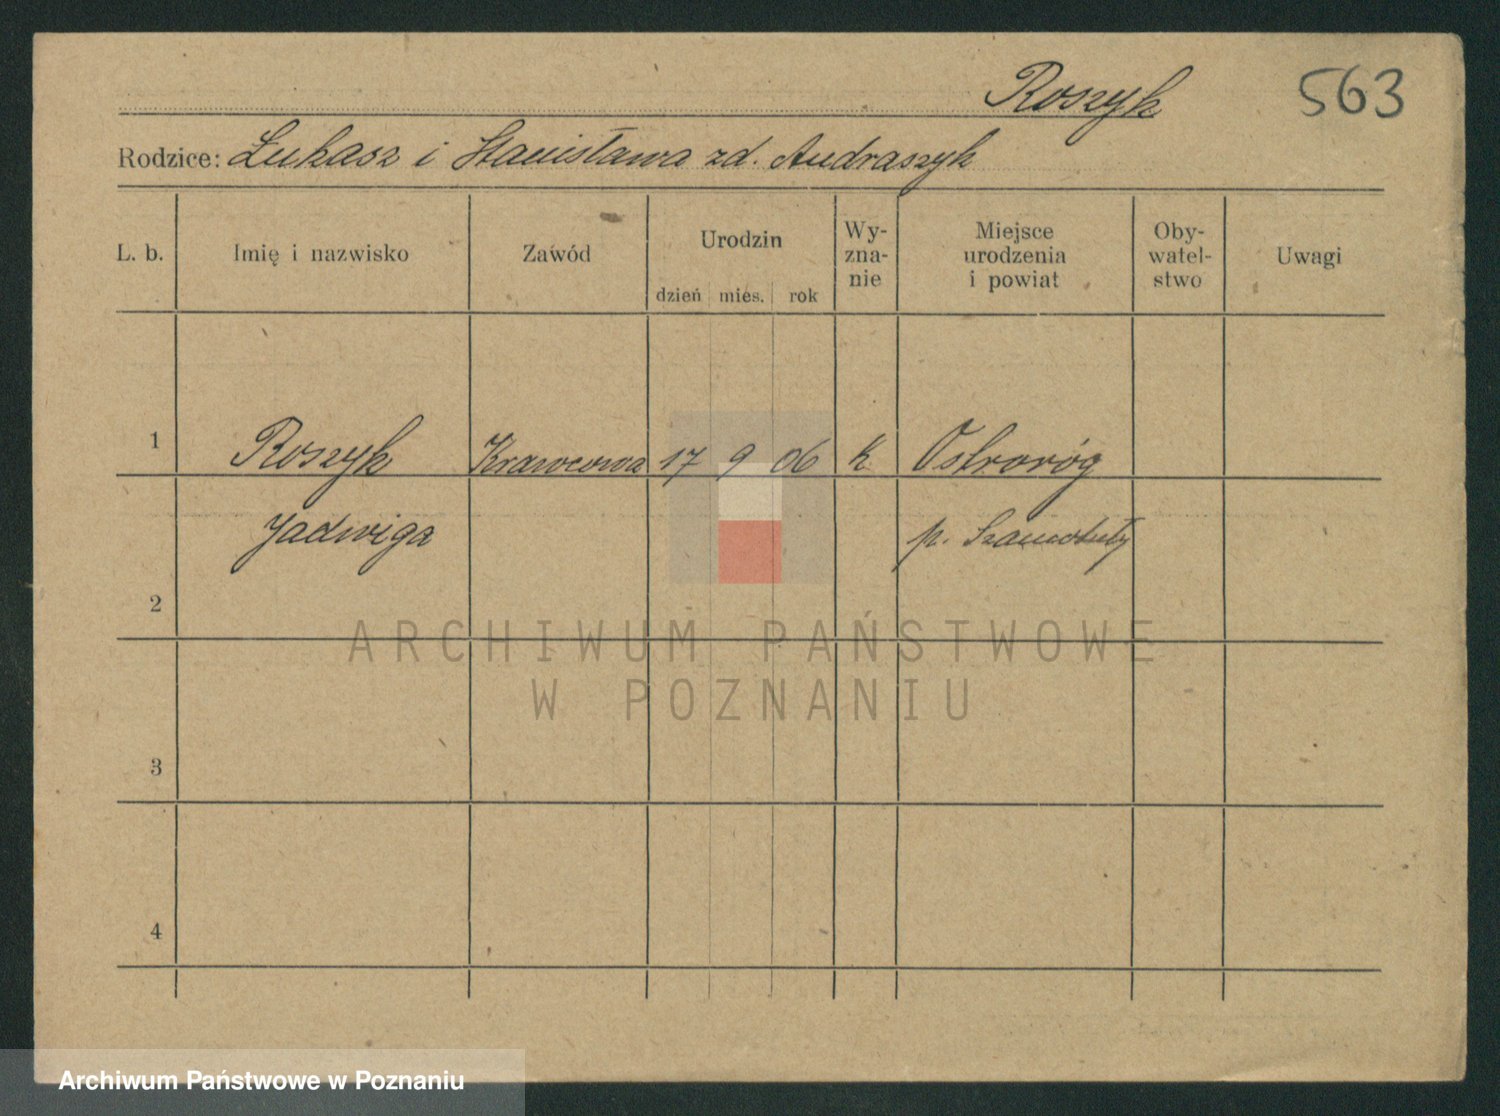 Roszyk 563
Rodzice: Łukasz i Stanisława zd. Andraszyk
L. b. Imię i nazwisko Zawód Urodzin dzień mies. rok Wy-zna-nie Miejsce urodzenia i powiat Oby-watel-stwo Uwagi
1 Roszyk Krawcowa 17 9 06 k Ostroróg
Jadwiga p. Szamotuły
2
ARCHIWUM PAŃSTWOWE
W POZNANIU
3
4
Archiwum Państwowe w Poznaniu